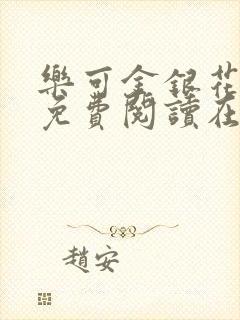 樂可金銀花
免費閱讀在
趙安